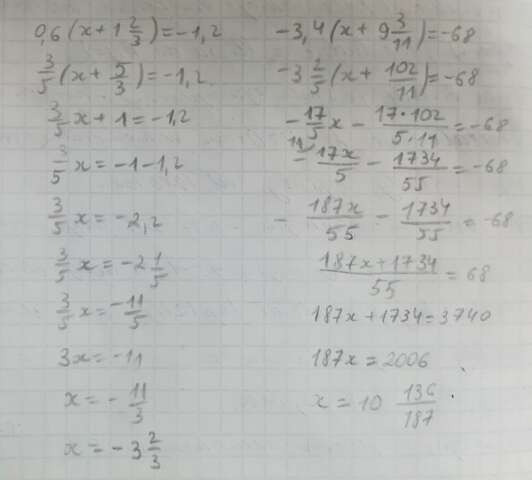 0,6(x+1 2/3)=-1,2
3/5(x+5/3)=-1,2
3/5x+1=-1,2
3/5x=-1-1,2
3/5x=-2,2
3/5x=-2 1/5
3/5x=-11/5
3x=-11
x=-11/3
x=-3 2/3
-3,4(x+9 3/11)=-68
-3 2/5(x+102/11)=-68
-17/5x-17·102/5·11=-68
11 -17x/5-1734/55=-68
-187x/55-1734/55=-68
187x+1734/55=68
187x+1734=3740
187x=2006
x=10 136/187